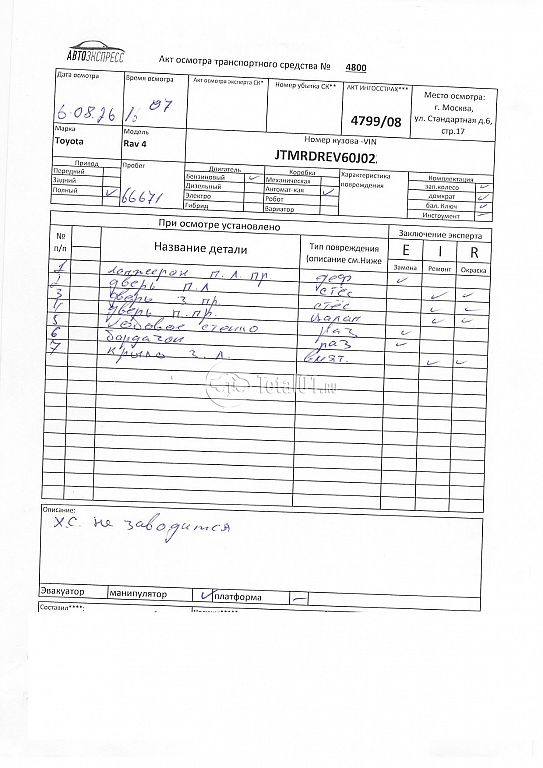 АВТОЭКСПРЕСС
Акт осмотра транспортного средства № 4800
Дата осмотра
Время осмотра
Акт осмотра эксперта СК*
Номер убытка СК**
АКТ ИНГОССТРАХ***
Место осмотра:
г. Москва,
ул. Стандартная д.6,
стр.17
4799/08
Марка
Модель
Номер кузова -VIN
Toyota
Rav 4
JTMRDREV60J02
Привод
Пробег
Двигатель
Коробка
Характеристика
повреждения
Комплектация
Передний
Бензиновый
Механическая
зап.колесо
Задний
Дизельный
Автомат-кая
домкрат
Полный
66671
Электро
Робот
бал. Ключ
Гибрид
Вариатор
Инструмент
При осмотре установлено
Заключение эксперта
№
п/п
Название детали
Тип повреждения
(описание см.Ниже
E I R
Замена Ремонт Окраска
1 п. л. пр. деф
2 дверь п. л стёс
3 дверь з пр. стёс
4 дверь п. пр. царап
5 лобовое стекло раз
6 бардачок раз
7 крыло з. л. вмят.
Total01.ru
Описание:
х.с. не заводится
Эвакуатор манипулятор платформа
Составил****: